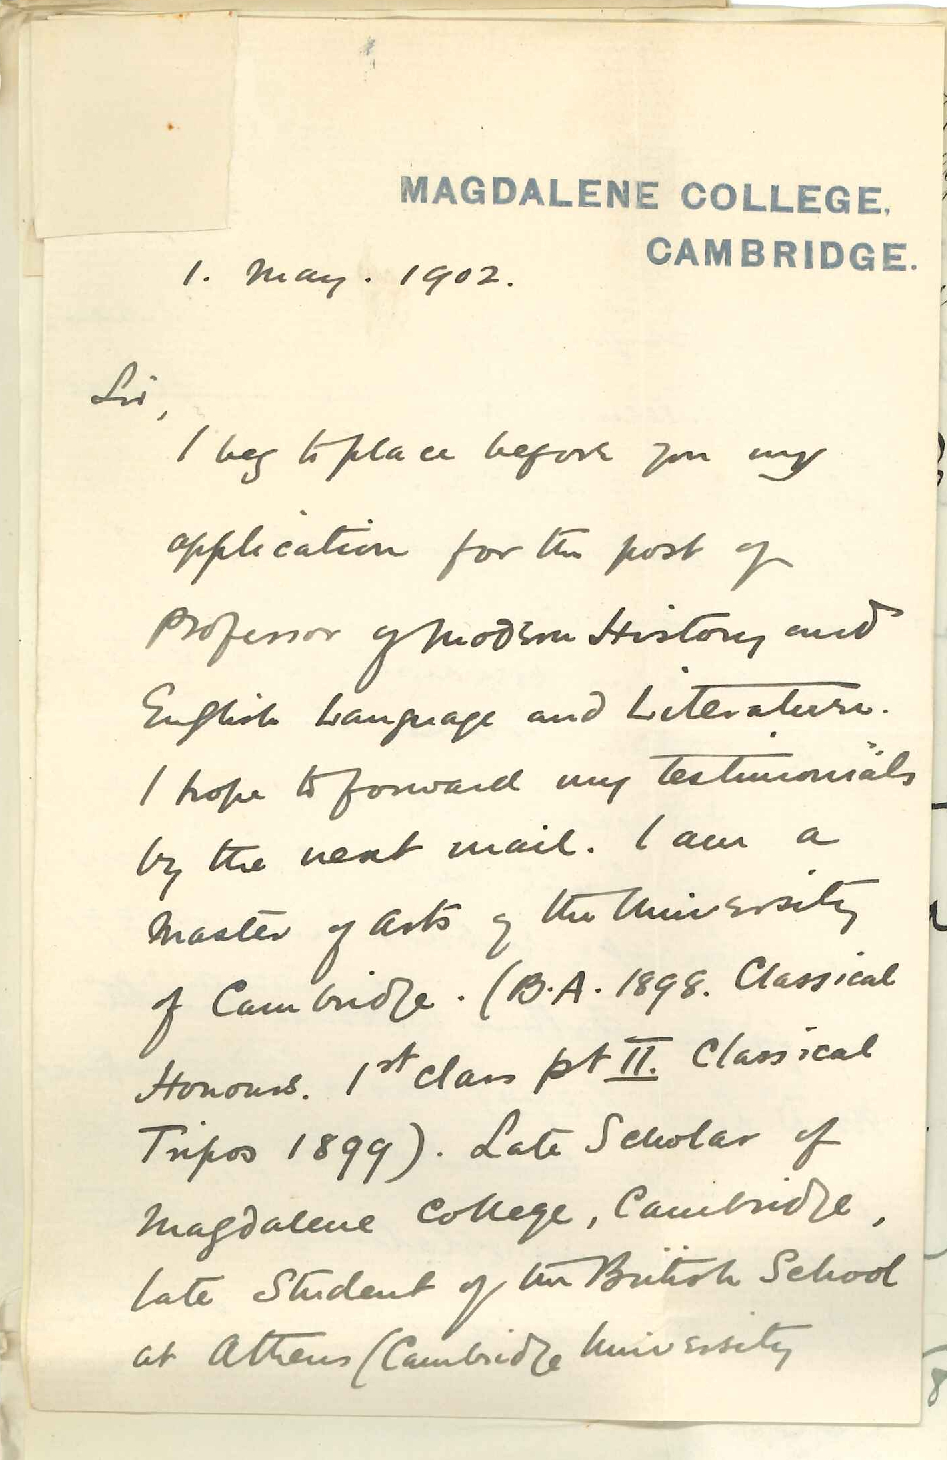 MAGDALENE COLLEGE,
CAMBRIDGE.
1. May. 1902.
Sir,
I beg to place before you my
application for the post of
Professor of Modern History and
English Language and Literature.
I hope to forward my testimonials
by the next mail. I am a
Master of Arts of the University
of Cambridge. (B.A. 1898. Classical
Honours. 1st class pt II. Classical
Tripos 1899). Late Scholar of
Magdalene College, Cambridge,
late Student of the British School
at Athens (Cambridge University